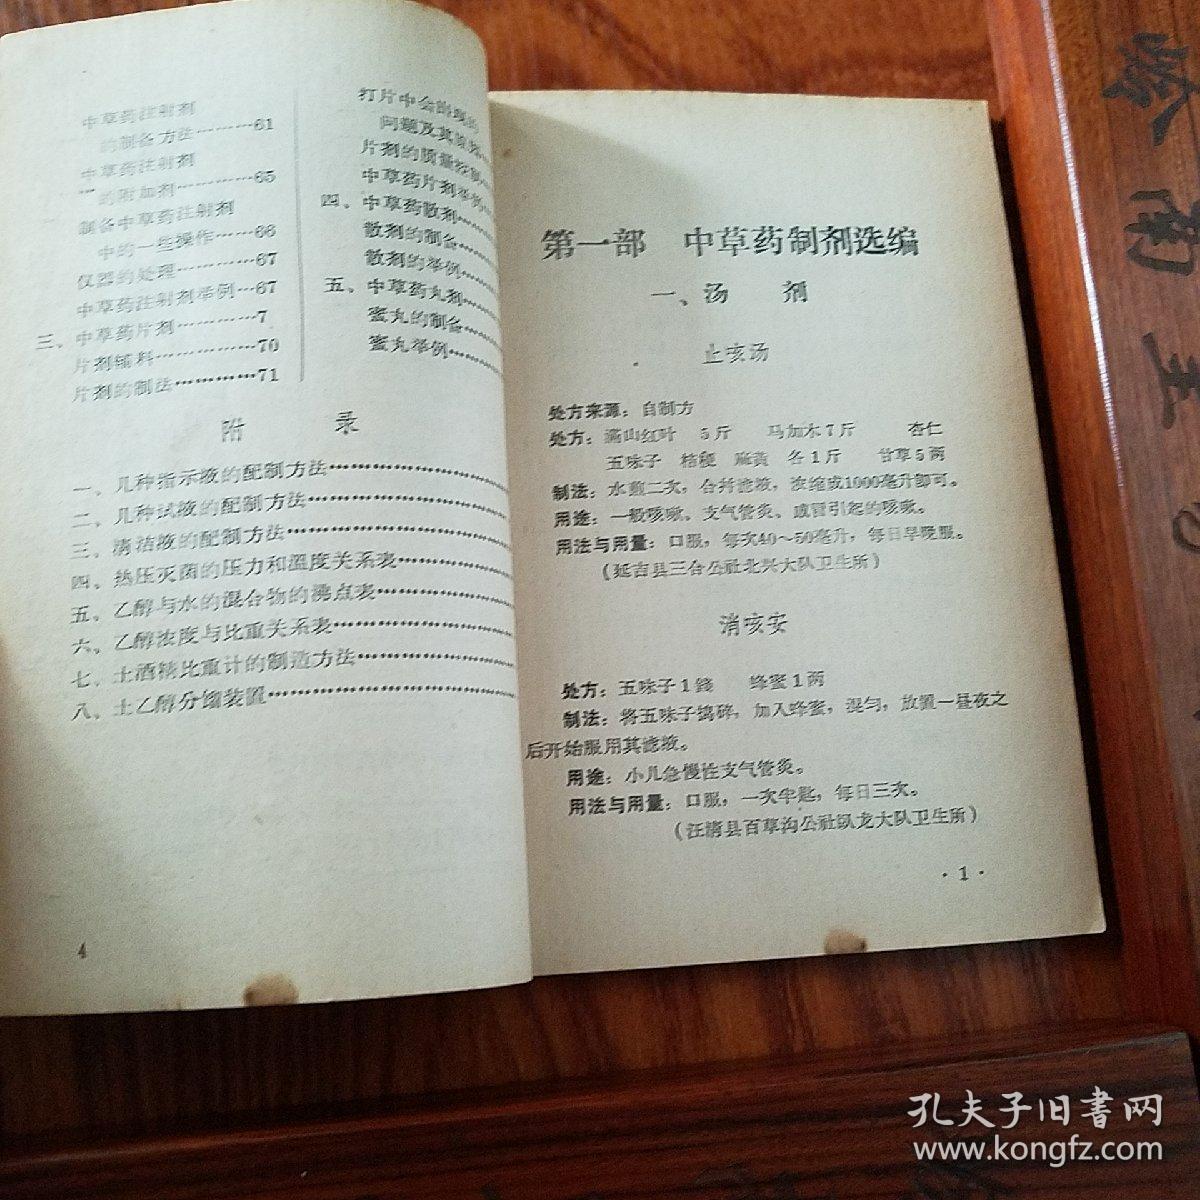 中草药注射剂
的制备方法………61
中草药注射剂
的附加剂…………65
制备中草药注射剂
中的一些操作……66
仪器的处理…………67
中草药注射剂举例…67
三、中草药片剂…………7
片剂辅料……………70
片剂的制法…………71
打片中会出现的
问题及其原因
片剂的质量控制
中草药片剂举例
四、中草药散剂……
散剂的制备……
散剂的举例……
五、中草药丸剂……
蜜丸的制备……
蜜丸举例……
附 录
一、几种指示液的配制方法……
二、几种试液的配制方法……
三、清洁液的配制方法……
四、热压灭菌的压力和温度关系表……
五、乙醇与水的混合物的沸点表……
六、乙醇浓度与比重关系表……
七、土酒精比重计的制造方法……
八、土乙醇分馏装置……
4
第一部 中草药制剂选编
一、汤 剂
止咳汤
处方来源：自制方
处方：满山红叶 5斤 马加木7斤 杏仁
五味子 桔梗 麻黄 各1斤 甘草5两
制法：水煎二次，合并滤液，浓缩或1000毫升即可。
用途：一般咳嗽、支气管炎、感冒引起的咳嗽。
用法与用量：口服，每次40～50毫升，每日早晚服。
（延吉县三合公社北兴大队卫生所）
消咳安
处方：五味子1錢 蜂蜜1两
制法：将五味子捣碎，加入蜂蜜，混匀，放置一昼夜之
后开始服用其滤液。
用途：小儿急慢性支气管炎。
用法与用量：口服，一次半匙，每日三次。
（汪清县百草沟公社臥龙大队卫生所）
·1·
孔夫子旧書网
www.kongfz.com